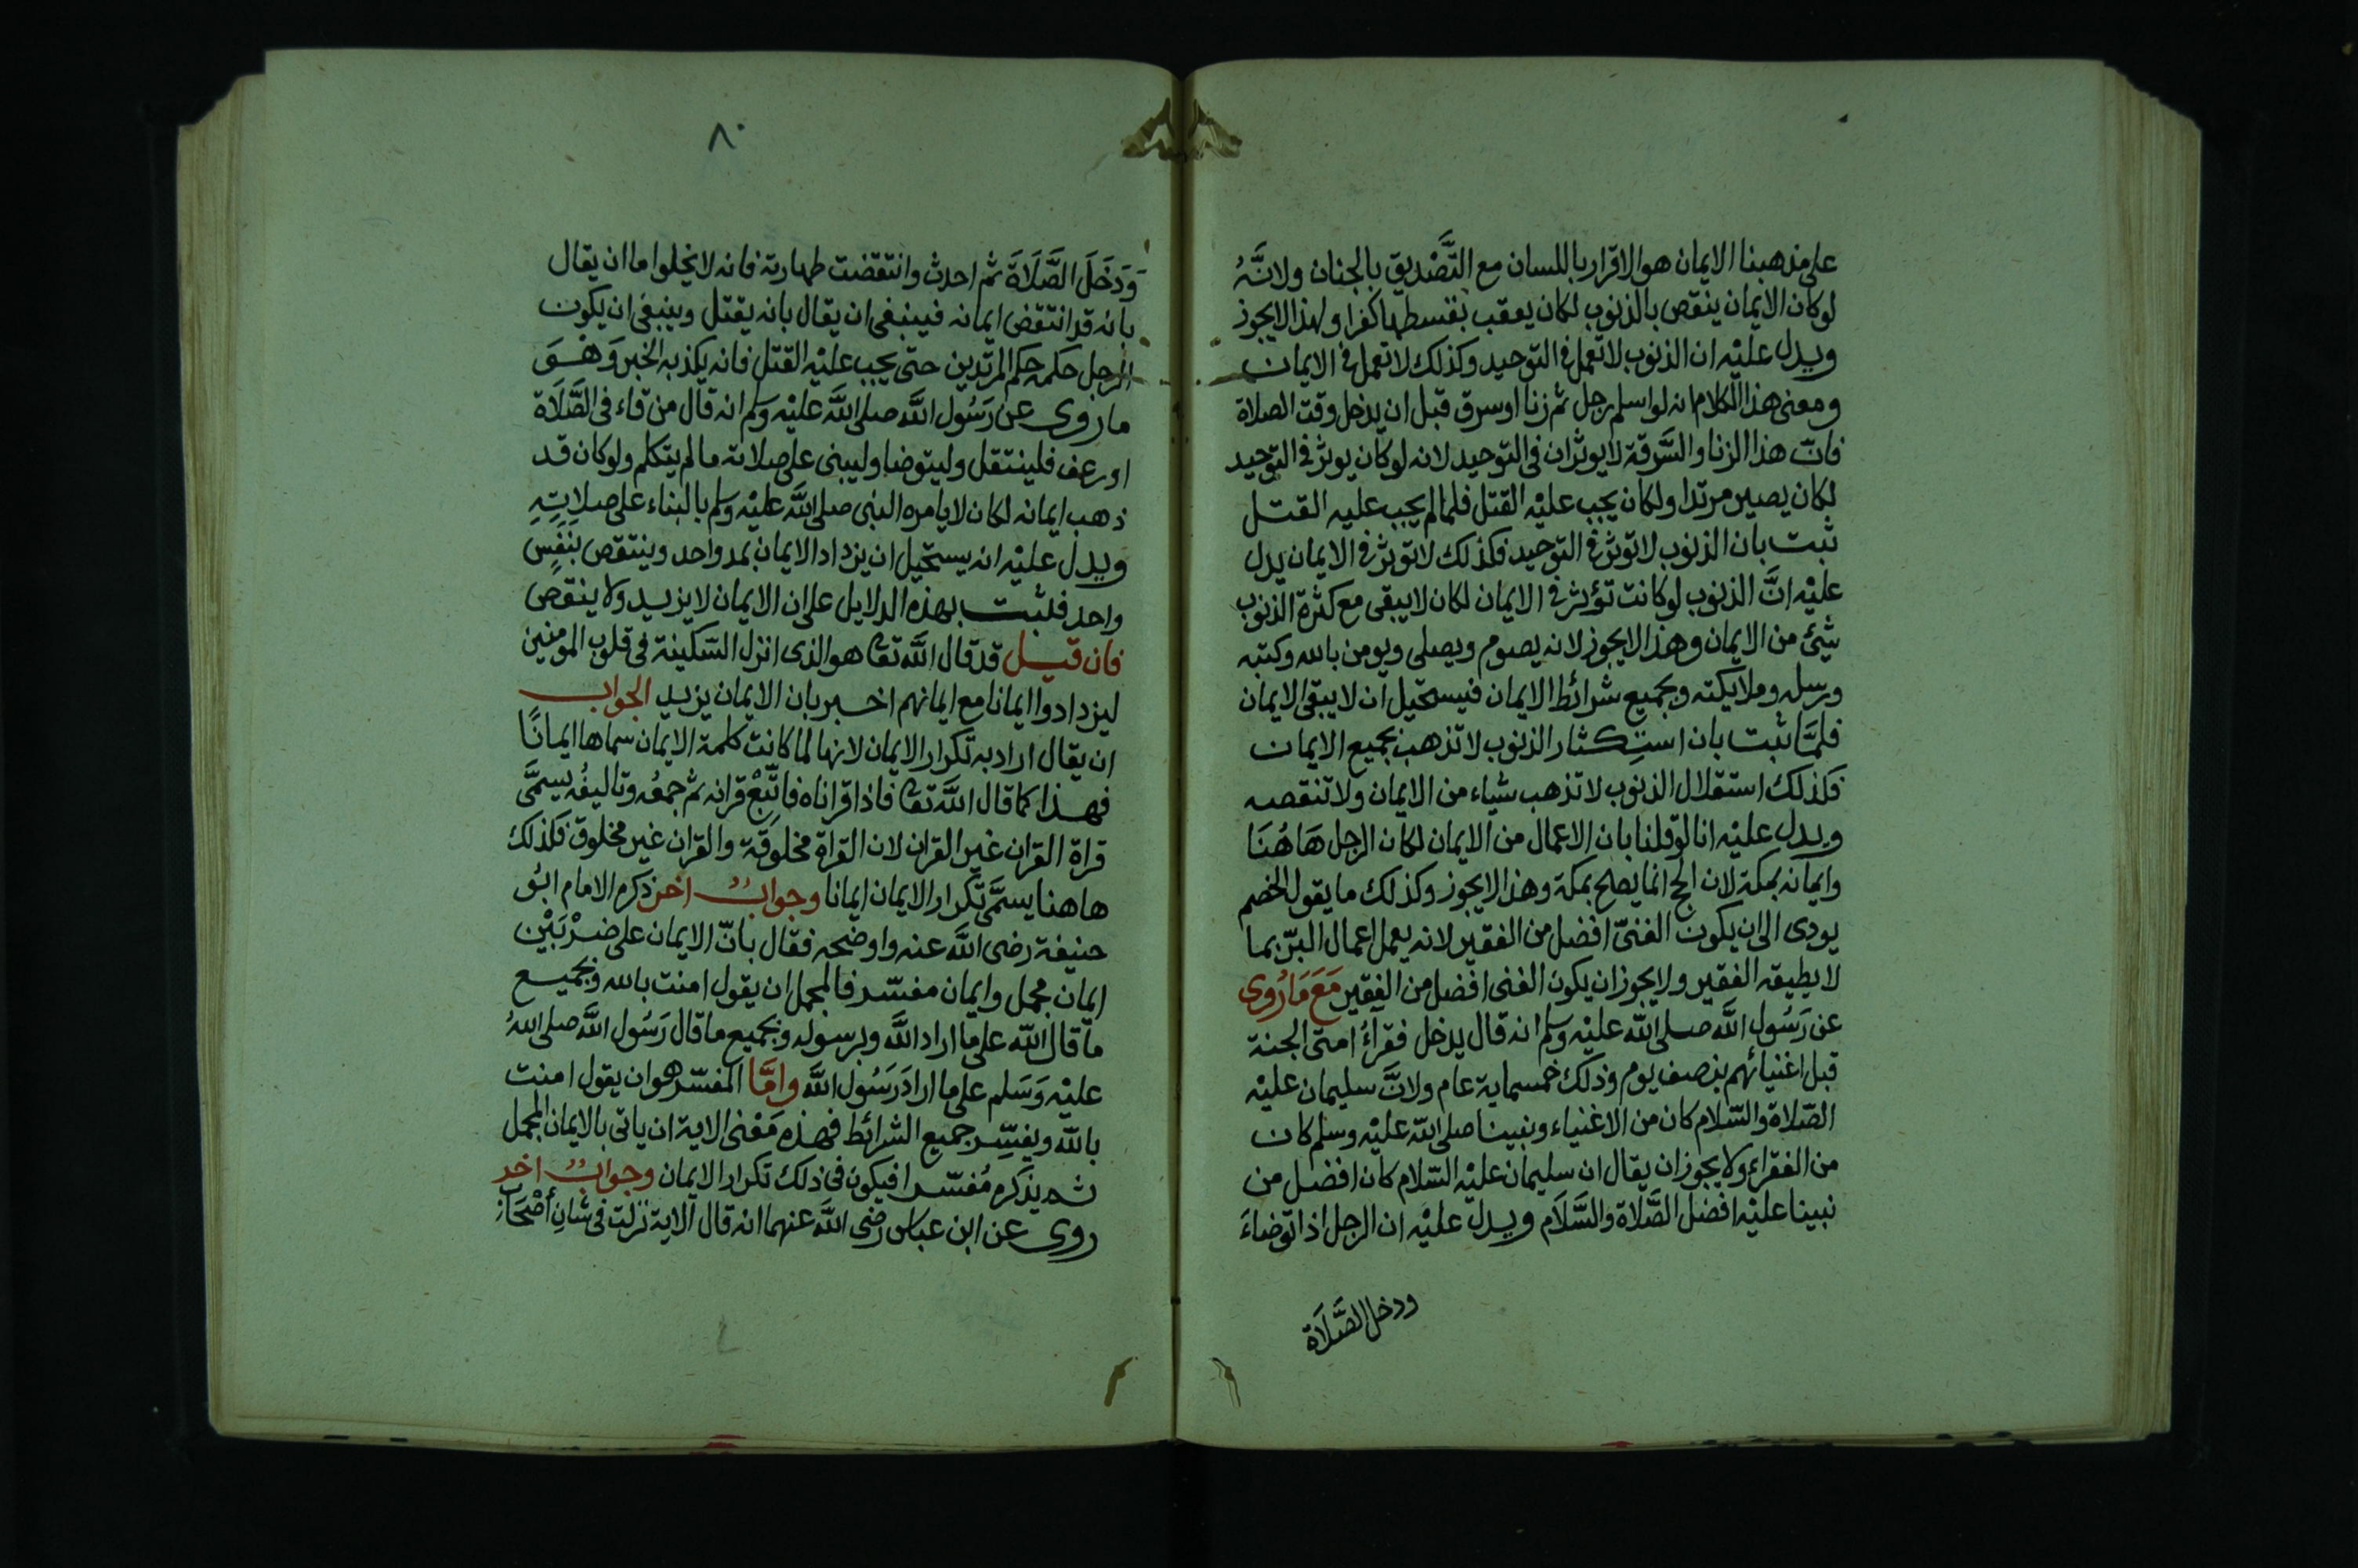 على مذهبنا الايمان هو الاقرار باللسان مع التَّصْديق بالجنان ولانَّهُ
لو كان الايمان ينقص بالذنوب لكان يعقب بقسطها كفرا ولهذا لايجوز
ويدل عليْه ان الذنوب لاتعمل فى التوحيد وكذلك لاتعمل فى الايمان
ومعنى هذا الكلام انه لو اسلم رجل ثم زنا او سرق قبل ان يدخل وقت الصلاة
فانّ هذا الزنا والسَّرقة لايوثران فى التوحيد لانه لو كان يوثر فى التوحيد
لكان يصير مرتدا ولكان يجب عليْه القتل فلما لم يجب عليه القتل
ثبت بان الذنوب لاتوثر فى التوحيد فكذلك لاتوثر فى الايمان يدل
عليْه انَّ الذنوب لو كانت تؤثر فى الايمان لكان لايبقى مع كثرة الذنوب
شيئ من الايمان وهذا لايجوز لانه يصوم ويصلى ويومن بالله وكتبه
ورسله وملايكته وبجميع شرائط الايمان فيستحيل ان لا يبقى الايمان
فلمَّا ثبت بان استِكثار الذنوب لا تذهب بجميع الايمان
فكذلك استقلال الذنوب لا تذهب شياء من الايمان ولا تنقصه
ويدل عليْه انا لو قلنا بان الاعمال من الايمان لكان الرجل هَاهُنَا
وايمانه بمكة لان الحج انما يصلح بمكة وهذا لايجوز وكذلك ما يقول الخصم
يودى الى ان يكون الغنىّ افضل من الفقير لانه يعمل اعمال البرّ بما
لا يطيقه الفقير ولايجوز ان يكون الغنى افضل من الفقير مَعَ مَا رُوى
عن رَسُول اللَّه صلى اللّه عليْه وسلم انه قال يدخل فقراءُ امتى الجنة
قبل اغنيائهم بنصف يوم وذلك خمسماية عام ولانَّ سليمان عليْه
الصّلاة والسّلام كان من الاغنياء ونبينا صلى اللّه عليْه وسلم كان
من الفقراء ولا يجوز ان يقال ان سليمان عليْه السّلام كان افضل من
نبينا عليْه افضل الصَّلاة والسَّلَام ويدل عليْه ان الرجل اذا توضاءَ
ودخل الصَّلَاة
٨٠
وَدَخَلَ الصَّلَاةَ ثم احدث وانتقضت طهارته فانه لايخلوا ما ان يقال
بانه قد انتقض ايمانه فينبغى ان يقال بانه يقتل وينبغى ان يكون
الرجل حكمه حكم المرتدين حتى يجب عليْه القتل فانه يكذبه الخبر وَهُوَ
ما روى عن رَسُول اللَّه صلى اللَّه عليْه وسلم انه قال من قاء فى الصَّلَاة
او رعف فلينتقل وليتوضا وليبنى على صلاته ما لم يتكلم ولو كان قد
ذهب ايمانه لكان لايامره النبى صلى اللَّه عليْه وسلم بالبناء على صلاتِهِ
ويدل عليْه انه يستحيل ان يزداد الايمان بمد واحد وينتقص بنَفَسٍ
واحد فلثبت بهذه الدلايل على ان الايمان لايزيد ولا ينقص
فان قيل قد قال اللَّه تعا هو الذى انزل السّكينة فى قلوب المومنين
ليزدادوا ايمانا مع ايمانهم اخبر بان الايمان يزيد الجواب
ان يقال اراد به تكرار الايمان لانها لما كانت كلمة الايمان سماها ايمانًا
فهذا كما قال اللَّه تعا فاذا قراناه فاتّبِعْ قرانه ثم جمعُه وتاليفُه يسمَّى
قراة القران غير القران لان القراة مخلوقة والقران غير مخلوق فكذلك
هاهنا يسمَّى تكرار الايمان ايمانا وجوابٌ اخر ذكره الامام ابُو
حنيفة رضى اللَّه عنه واوضحه فقال بانّ الايمان على ضرْبَيْن
ايمان مجمل وايمان مفسّر فالمجمل ان يقول امنت بالله وبجميع
ما قال اللّه على ما اراد اللَّه وبرسوله وبجميع ما قال رَسُول اللَّه صلى اللهُ
عليْه وَسَلم على ما ارادَ رَسُول اللَّه وامَّا المفسّر هو ان يقول امنت
باللّه ويفسِّر جميع الشرائط فهذه مَعْنى الاية ان ياتى بالايمان المجمل
ثم يذكره مُفسّرا فيكون فى ذلك تكرار الايمان وجوابٌ اخر
روى عن ابن عباس رضى اللَّه عنهما انه قال الاية نزلت فى شانِ أصْحَاب